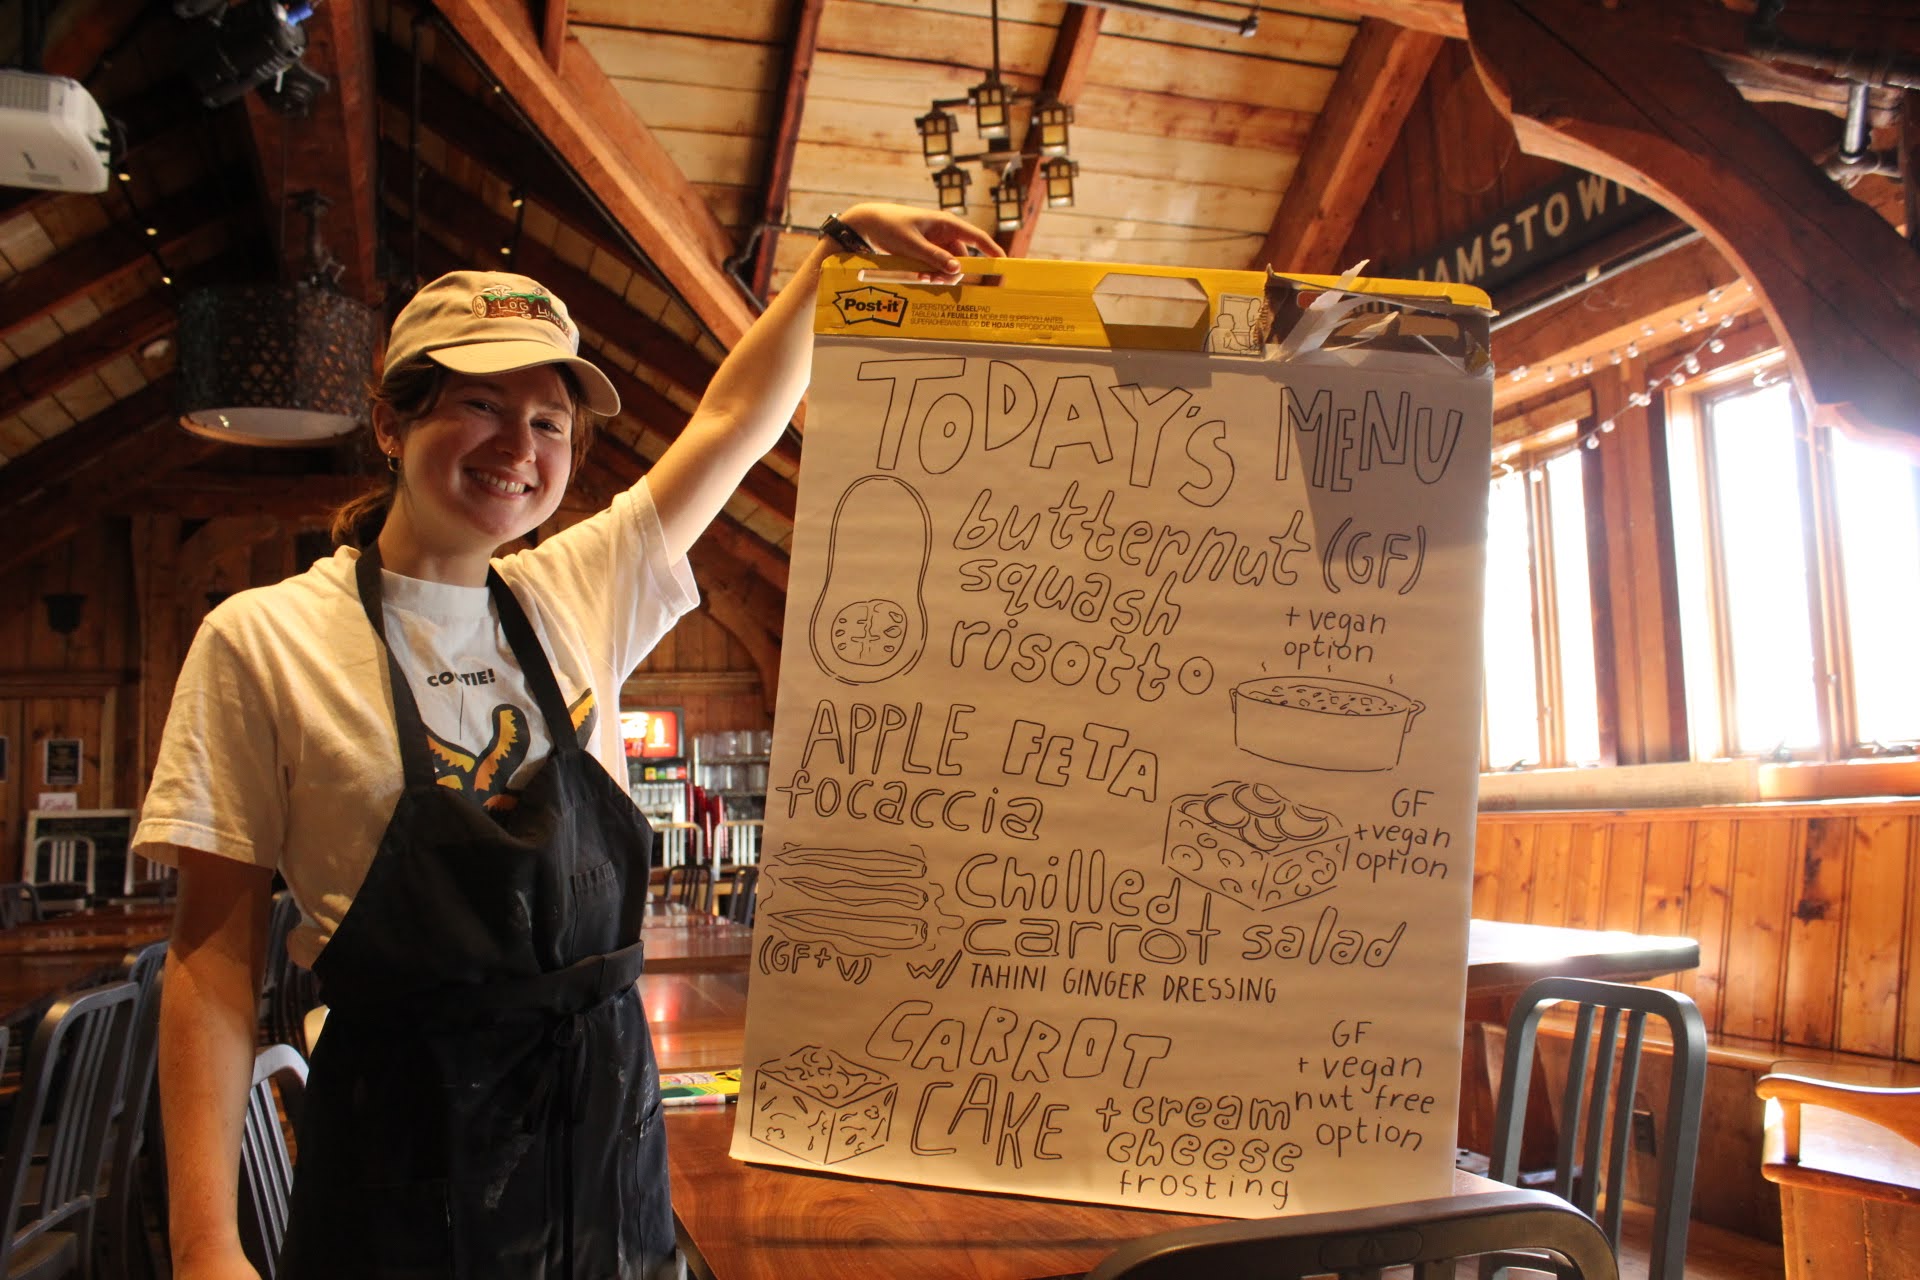 LOG LUNCH
AMSTOW
Post-it
SUPERSTICKY EASEL PAD
TABLEAU À FEUILLES MOBILES SUPERCOLLANTES
SUPERADHESIVAS BLOC DE HOJAS REPOSICIONABLES
TODAY'S MENU
butternut (GF)
squash
risotto
+ vegan
option
APPLE FETA
focaccia
GF
+vegan
option
Chilled
carrot salad
(GF+V) w/ TAHINI GINGER DRESSING
CARROT
CAKE + cream
cheese
frosting
GF
+ vegan
nut free
option